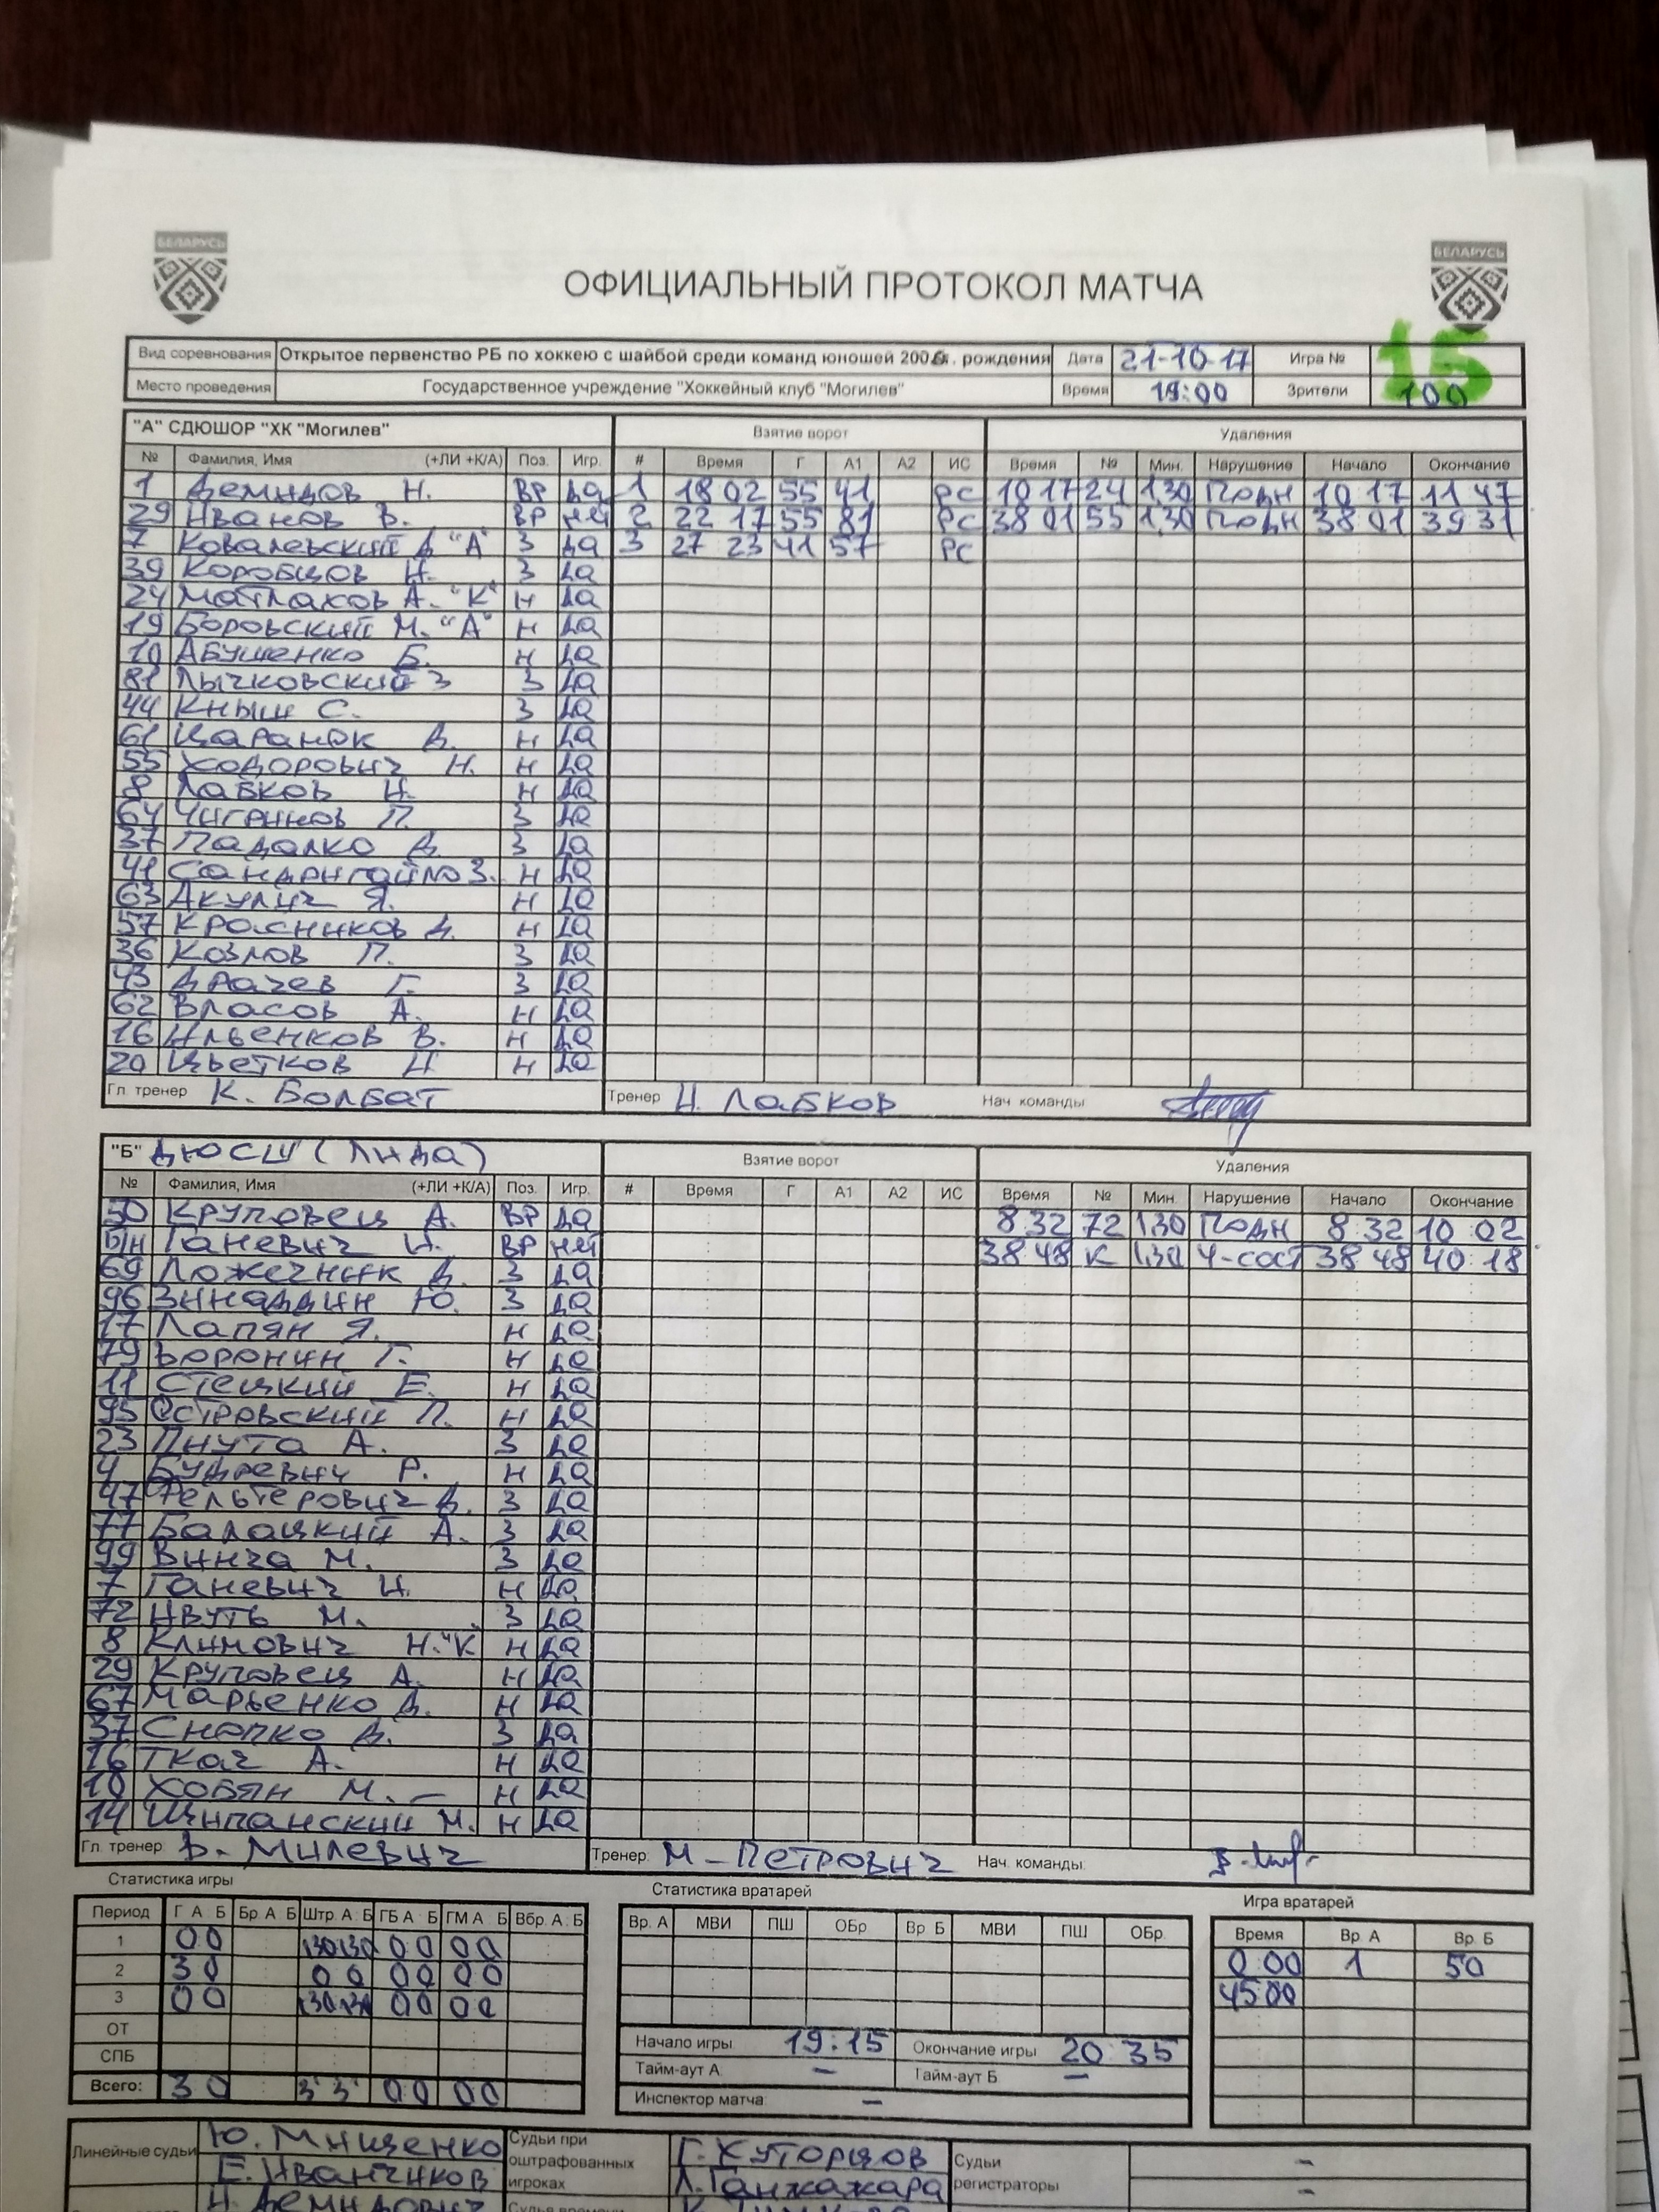 БЕЛАРУСЬ БЕЛАРУСЬ
ОФИЦИАЛЬНЫЙ ПРОТОКОЛ МАТЧА
Вид соревнования Открытое первенство РБ по хоккею с шайбой среди команд юношей 2006г. рождения Дата 21-10-17 Игра № 15
Место проведения Государственное учреждение "Хоккейный клуб "Могилев" Время 19:00 Зрители 100
"А" СДЮШОР "ХК "Могилев" Взятие ворот Удаления
№ Фамилия, Имя (+ЛИ +К/А) Поз. Игр. # Время Г А1 А2 ИС Время № Мин. Нарушение Начало Окончание
1 Демидов Н. ВР да 1 18 02 55 41 РС 10 17 24 1,30 Подн 10 17 11 47
29 Иванов В. ВР нет 2 22 17 55 81 РС 38 01 55 1,30 Подн 38 01 39 31
7 Ковалевский Д. "А" З да 3 27 23 41 57 РС
39 Коробцов И. З да
24 Матлахов А. "К" Н да
19 Боровский М. "А" Н да
10 Абушенко Б. Н да
81 Лычковский З З да
44 Кныш С. З да
61 Царанок В. Н да
55 Ходорович Н. Н да
8 Лабков И. Н да
64 Чигринов П. З да
37 Падалко Д. З да
41 З. Н да
63 Акулич Я. Н да
57 Красников Д. Н да
36 Козлов П. З да
43 Драчев Г. З да
62 Власов А. Н да
16 Ильенков В. Н да
20 Цветков И Н да
Гл. тренер К. Болбат Тренер И. Лабков Нач. команды
"Б" ДЮСШ (Лида) Взятие ворот Удаления
№ Фамилия, Имя (+ЛИ +К/А) Поз. Игр. # Время Г А1 А2 ИС Время № Мин. Нарушение Начало Окончание
50 Круповец А. ВР да 8 32 72 1,30 Подн 8 32 10 02
б/н Ганевич И. ВР нет 38 48 К 1,30 Ч-сост 38 48 40 18
69 Ложечник Д. З да
96 Зинаддин Ю. З да
17 Лапян Я. Н да
79 Воронин Г. Н да
11 Стецкий Е. Н да
95 Островский П. Н да
23 Пнута А. З да
4 Будревич Р. Н да
47 Фельтерович Д. З да
77 Балацкий А. З да
99 Винча М. З да
7 Ганевич И. Н да
72 Ивуть М. З да
8 Климович Н. "К" Н да
29 Круповец А. Н да
67 Марьенко Д. Н да
37 Снопко Д. З да
16 Ткач А. Н да
10 Хобян М. Н да
14 Щипанский М. Н да
Гл. тренер В. Милевич Тренер: М. Петрович Нач. команды:
Статистика игры Статистика вратарей Игра вратарей
Период Г А Б Бр. А Б Штр. А Б ГБ А Б ГМ А Б Вбр. А Б Вр. А МВИ ПШ ОБр Вр. Б МВИ ПШ ОБр. Время Вр. А Вр. Б
1 0 0 1,30 1,30 0 0 0 0 0 00 1 50
2 3 0 0 0 0 0 0 0 45 00
3 0 0 1,30 1,30 0 0 0 0
ОТ Начало игры 19:15 Окончание игры 20 35
СПБ Тайм-аут А – Тайм-аут Б –
Всего: 3 0 3' 3' 0 0 0 0 Инспектор матча –
Линейные судьи Ю. Мищенко Судьи при оштрафованных игроках Г. Хуторцов Судьи регистраторы –
Е. Иванчиков Л. Ганжажара –